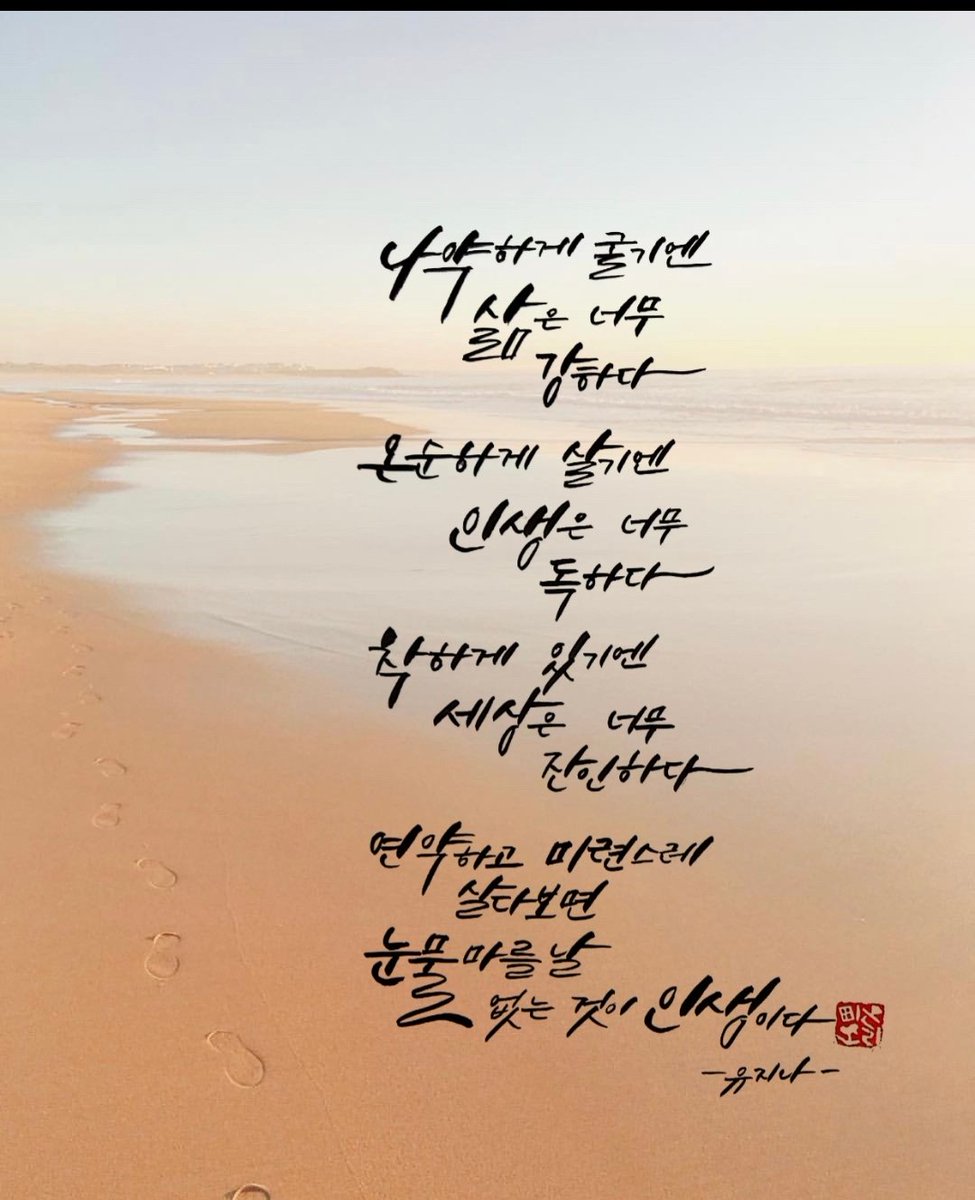 나약하게 굴기엔
삶은 너무
강하다
온순하게 살기엔
인생은 너무
독하다
착하게 있기엔
세상은 너무
잔인하다
연약하고 미련스레
살다보면
눈물 마를 날
없는 것이 인생이다
-유지나-